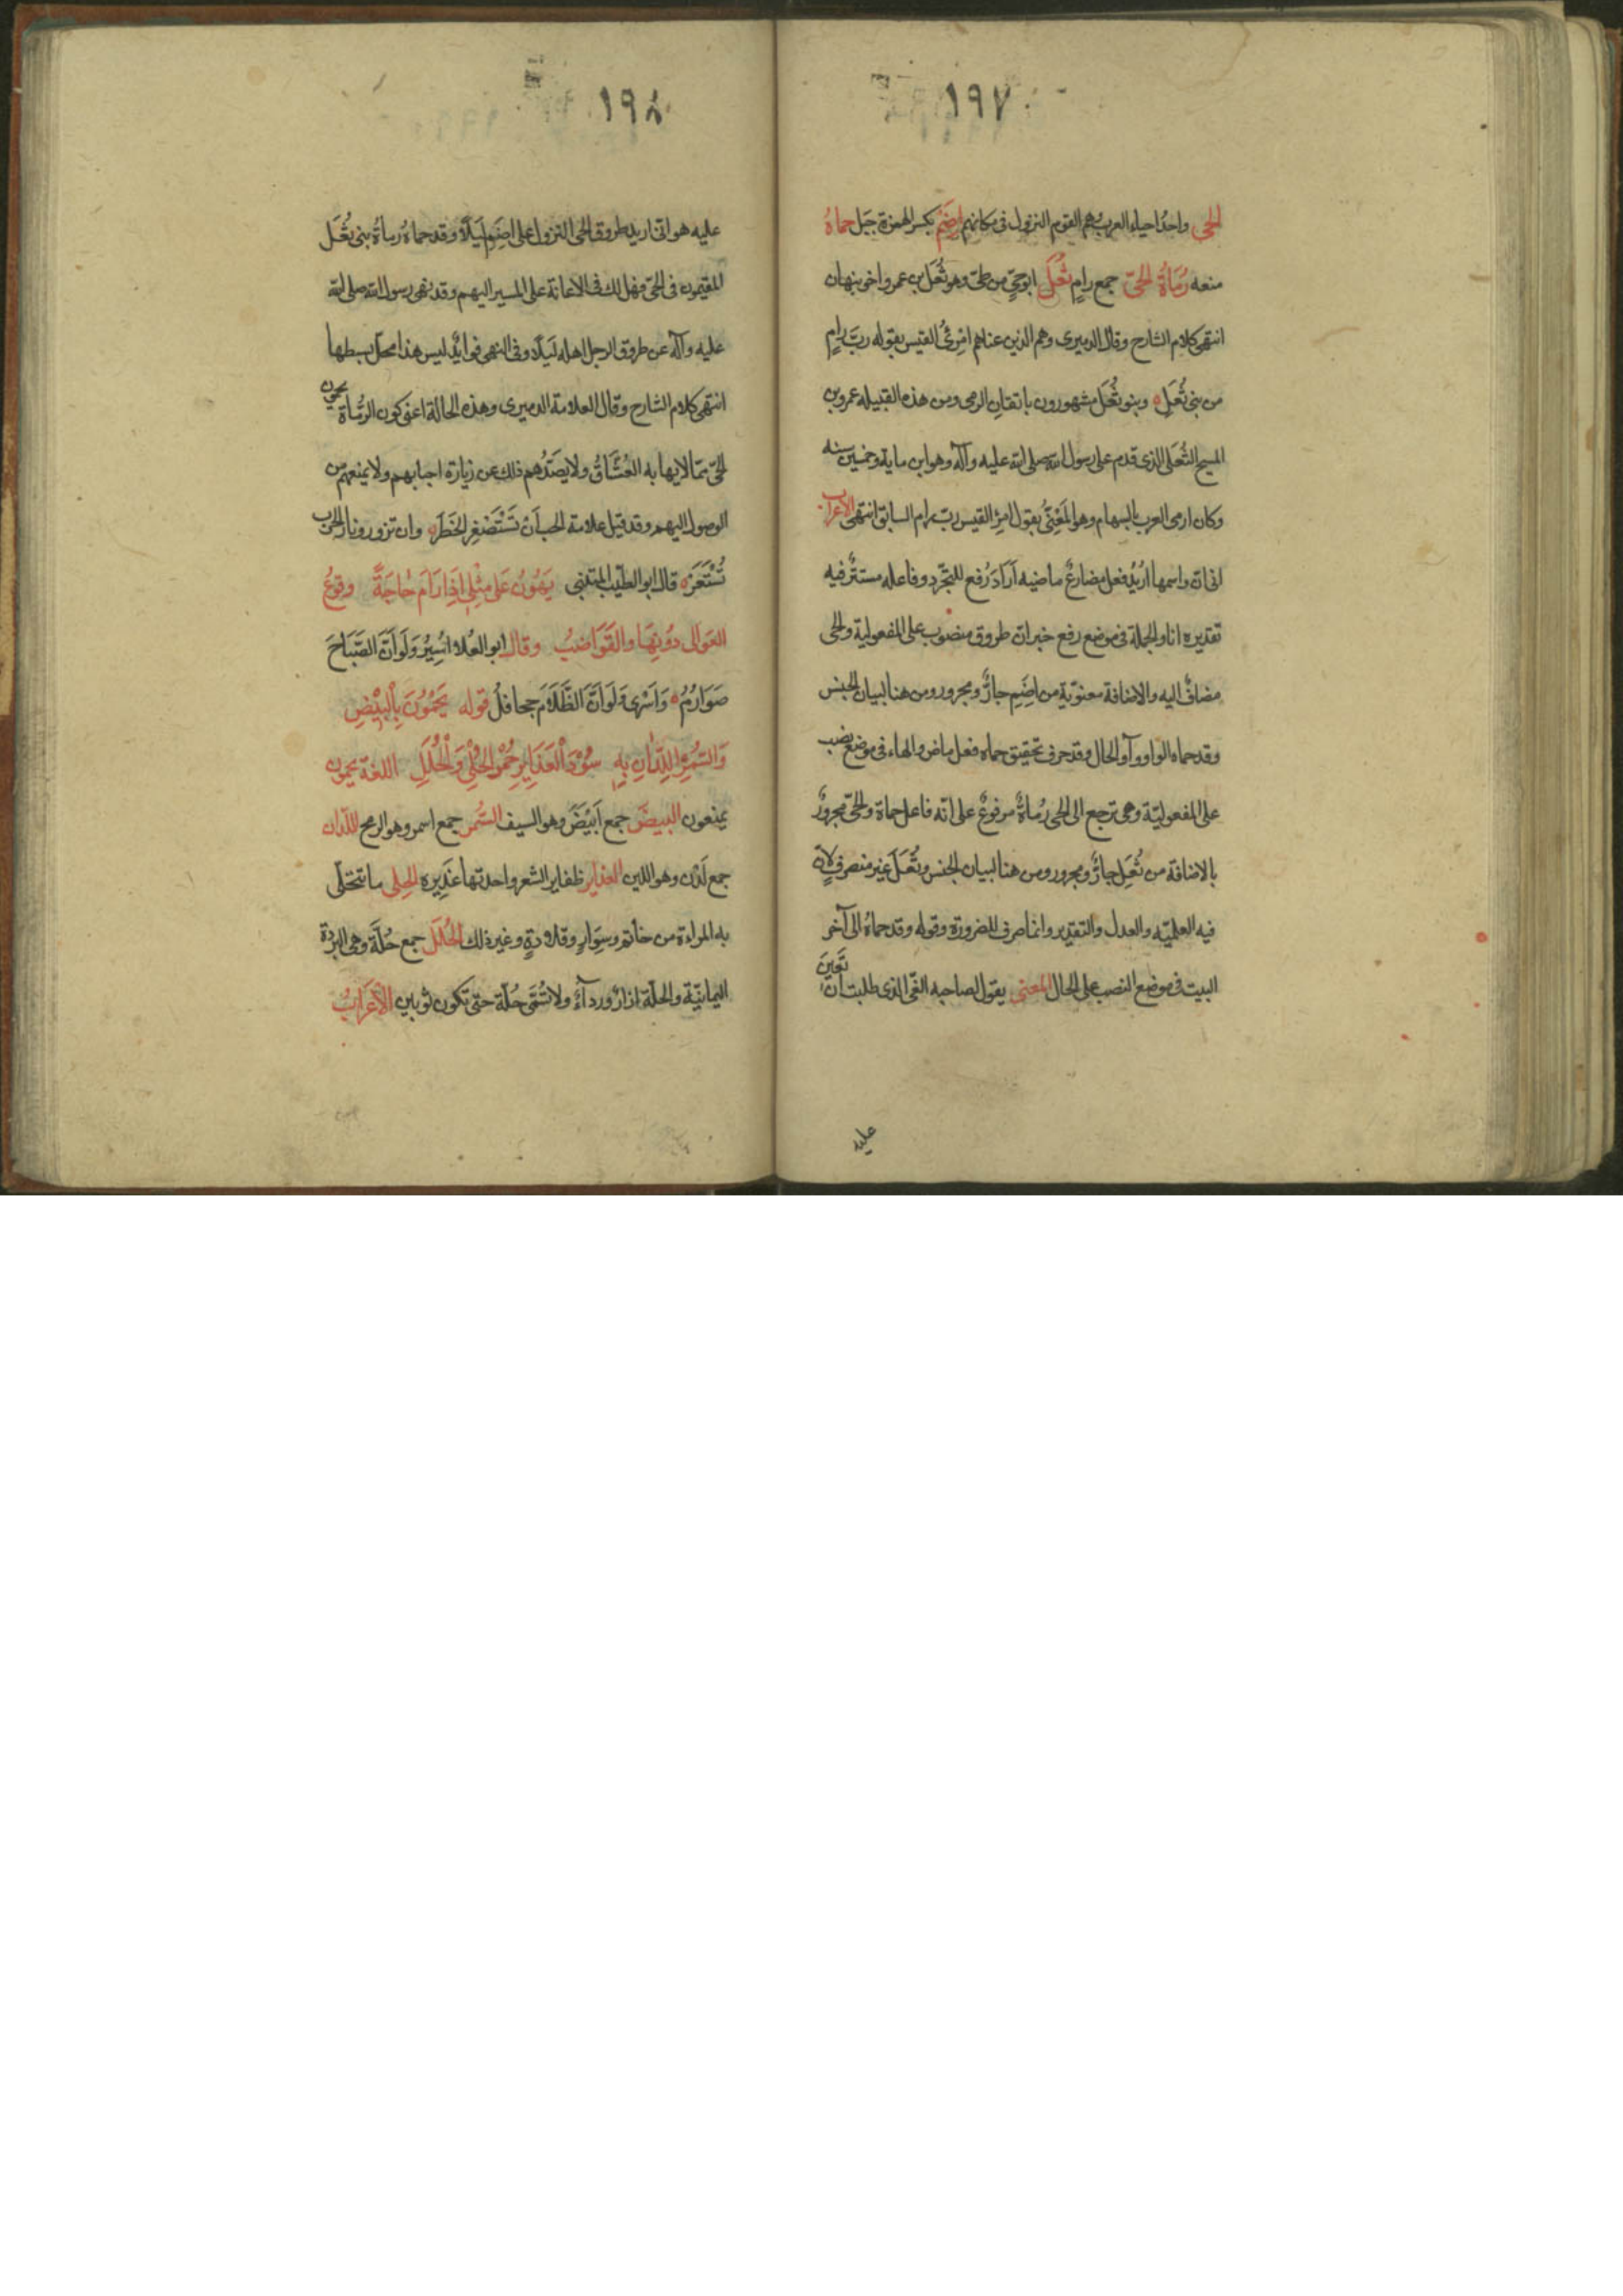 ١٩٧
الحي واحد احياء العرب وهم القوم النزول فى مكانهم إِضَم بكسر الهمزة جبل حماهُ
منعه رُمَاةُ الحىّ جمع رامٍ ثُعَل ابو حىّ من طى وهو ثُعَل بن عمرو اخى نبهان
انتهى كلام الشارح وقال الدميرى وهم الذين عناهم امرئ القيس بقوله ربّ رامٍ
من بنى ثُعَلٍ وبنو ثُعَل مشهورون باتقان الرمى ومن هذه القبيله عمرو بن
المسيح الثُعَلى الذى قدم على رسول الله صلى الله عليه وآله وهو ابن ماية وخمسين سنه
وكان ارمى العرب بالسهام وهو المَعْنِىّ بقول امرِئ القيس ربّ رام السابق انتهى الاعراب
انى انّ واسمها اُرِيْدُ فعل مضارعٌ ماضيه اَرَادَ رُفع للتجرّد وفاعله مستترٌ فيه
تقديره انا والجملة فى موضع رفع خبر انّ طروق منصوب على المفعولية والحى
مضافٌ اليه والاضافة معنويّة من اِضَمِ جارٌّ ومجرور ومن هنا لبيان الجنس
وقد حماه الواو واو الحال وقد حرف تحقيق حماه فعل ماض والهاء فى موضع نصب
على المفعوليّة وهى ترجع الى الحى رُماةٌ مرفوعٌ على انّه فاعل حماة والحىّ مجرورٌ
بالاضافة من ثُعَلِ جارٌّ ومجرور ومن هنا لبيان الجنس وثُعَل غير منصرفٍ لانّ
فيه العلميّه والعدل والتقدير وانما صرف للضرورة وقوله وقد حماهُ الى آخر
البيت فى موضع النصب على الحال المعنى يقول لصاحبه الغى الذى طلبت ان تعين
عليه
١٩٨
عليه هو انى اريد طروق الحى النزول على اِضَمِ لَيْلًا وقد حماهُ رماةُ بنى ثُعَل
المقيمون فى الحىّ فهل لك فى الاعانة على المسير اليهم وقد نهى رسول الله صلى الله
عليه وآله عن طروق الرجل اهله لَيْلًا وفى النهى فوايدٌ ليس هذا محل بسطها
انتهى كلام الشارح وقال العلامة الدميرى وهذه الحالة اعنى كون الرُّماة يحمون
الحىّ ممّا لايهابه العُشَّاقُ ولا يصَدُهم ذلك عن زيارة احبابهم ولا يمنعهم من
الوصول اليهم وقد قيل علامة الحب اَنْ تَسْتَصْغِر الخَطَرَ وان تزور ونار الحرب
تُسْتَعَر قال ابو الطيّب المتنبى يَهُونُ عَلى مِثْلِى اِذَا رَامَ حَاجَةً وقوعُ
العَوالى دوُنِهَا والقَوَاضبُ وقال ابو العُلا اَسِيْرُ وَلَو اَنَّ الصَّبَاحَ
صَوَارُمُ وَاَسْرِى وَلَوَ اَنَّ الظَّلَامَ جحافلُ قوله يَحْمُوْنَ بِالْبِيْضِ
وَالسُّمْرِ اللِّدَانِ بِهِ سُوْدَ الْغَدَايِرِ حُمْرَ الحُلِىِّ وَالْحُلَلِ اللغة يحمون
يمنعون البيضَ جمع اَبْيَضَ وهو السيف السُّمر جمع اسمر وهو الرمح اللدان
جمع لَدْن وهو اللين الغداير ظفاير الشعر واحدتها غَدِيرِه الحلى ما تتحلّى
به المراءة من خاتم وسِوَارٍ وقلادةٍ وغير ذلك الحُلَل جمع حُلَّة وهى البُردة
اليمانيّة والحلّة ازارٌ ورداءٌ ولا تُسَمّى حُلَّة حتى تكون ثوبين الاَعْرَابُ